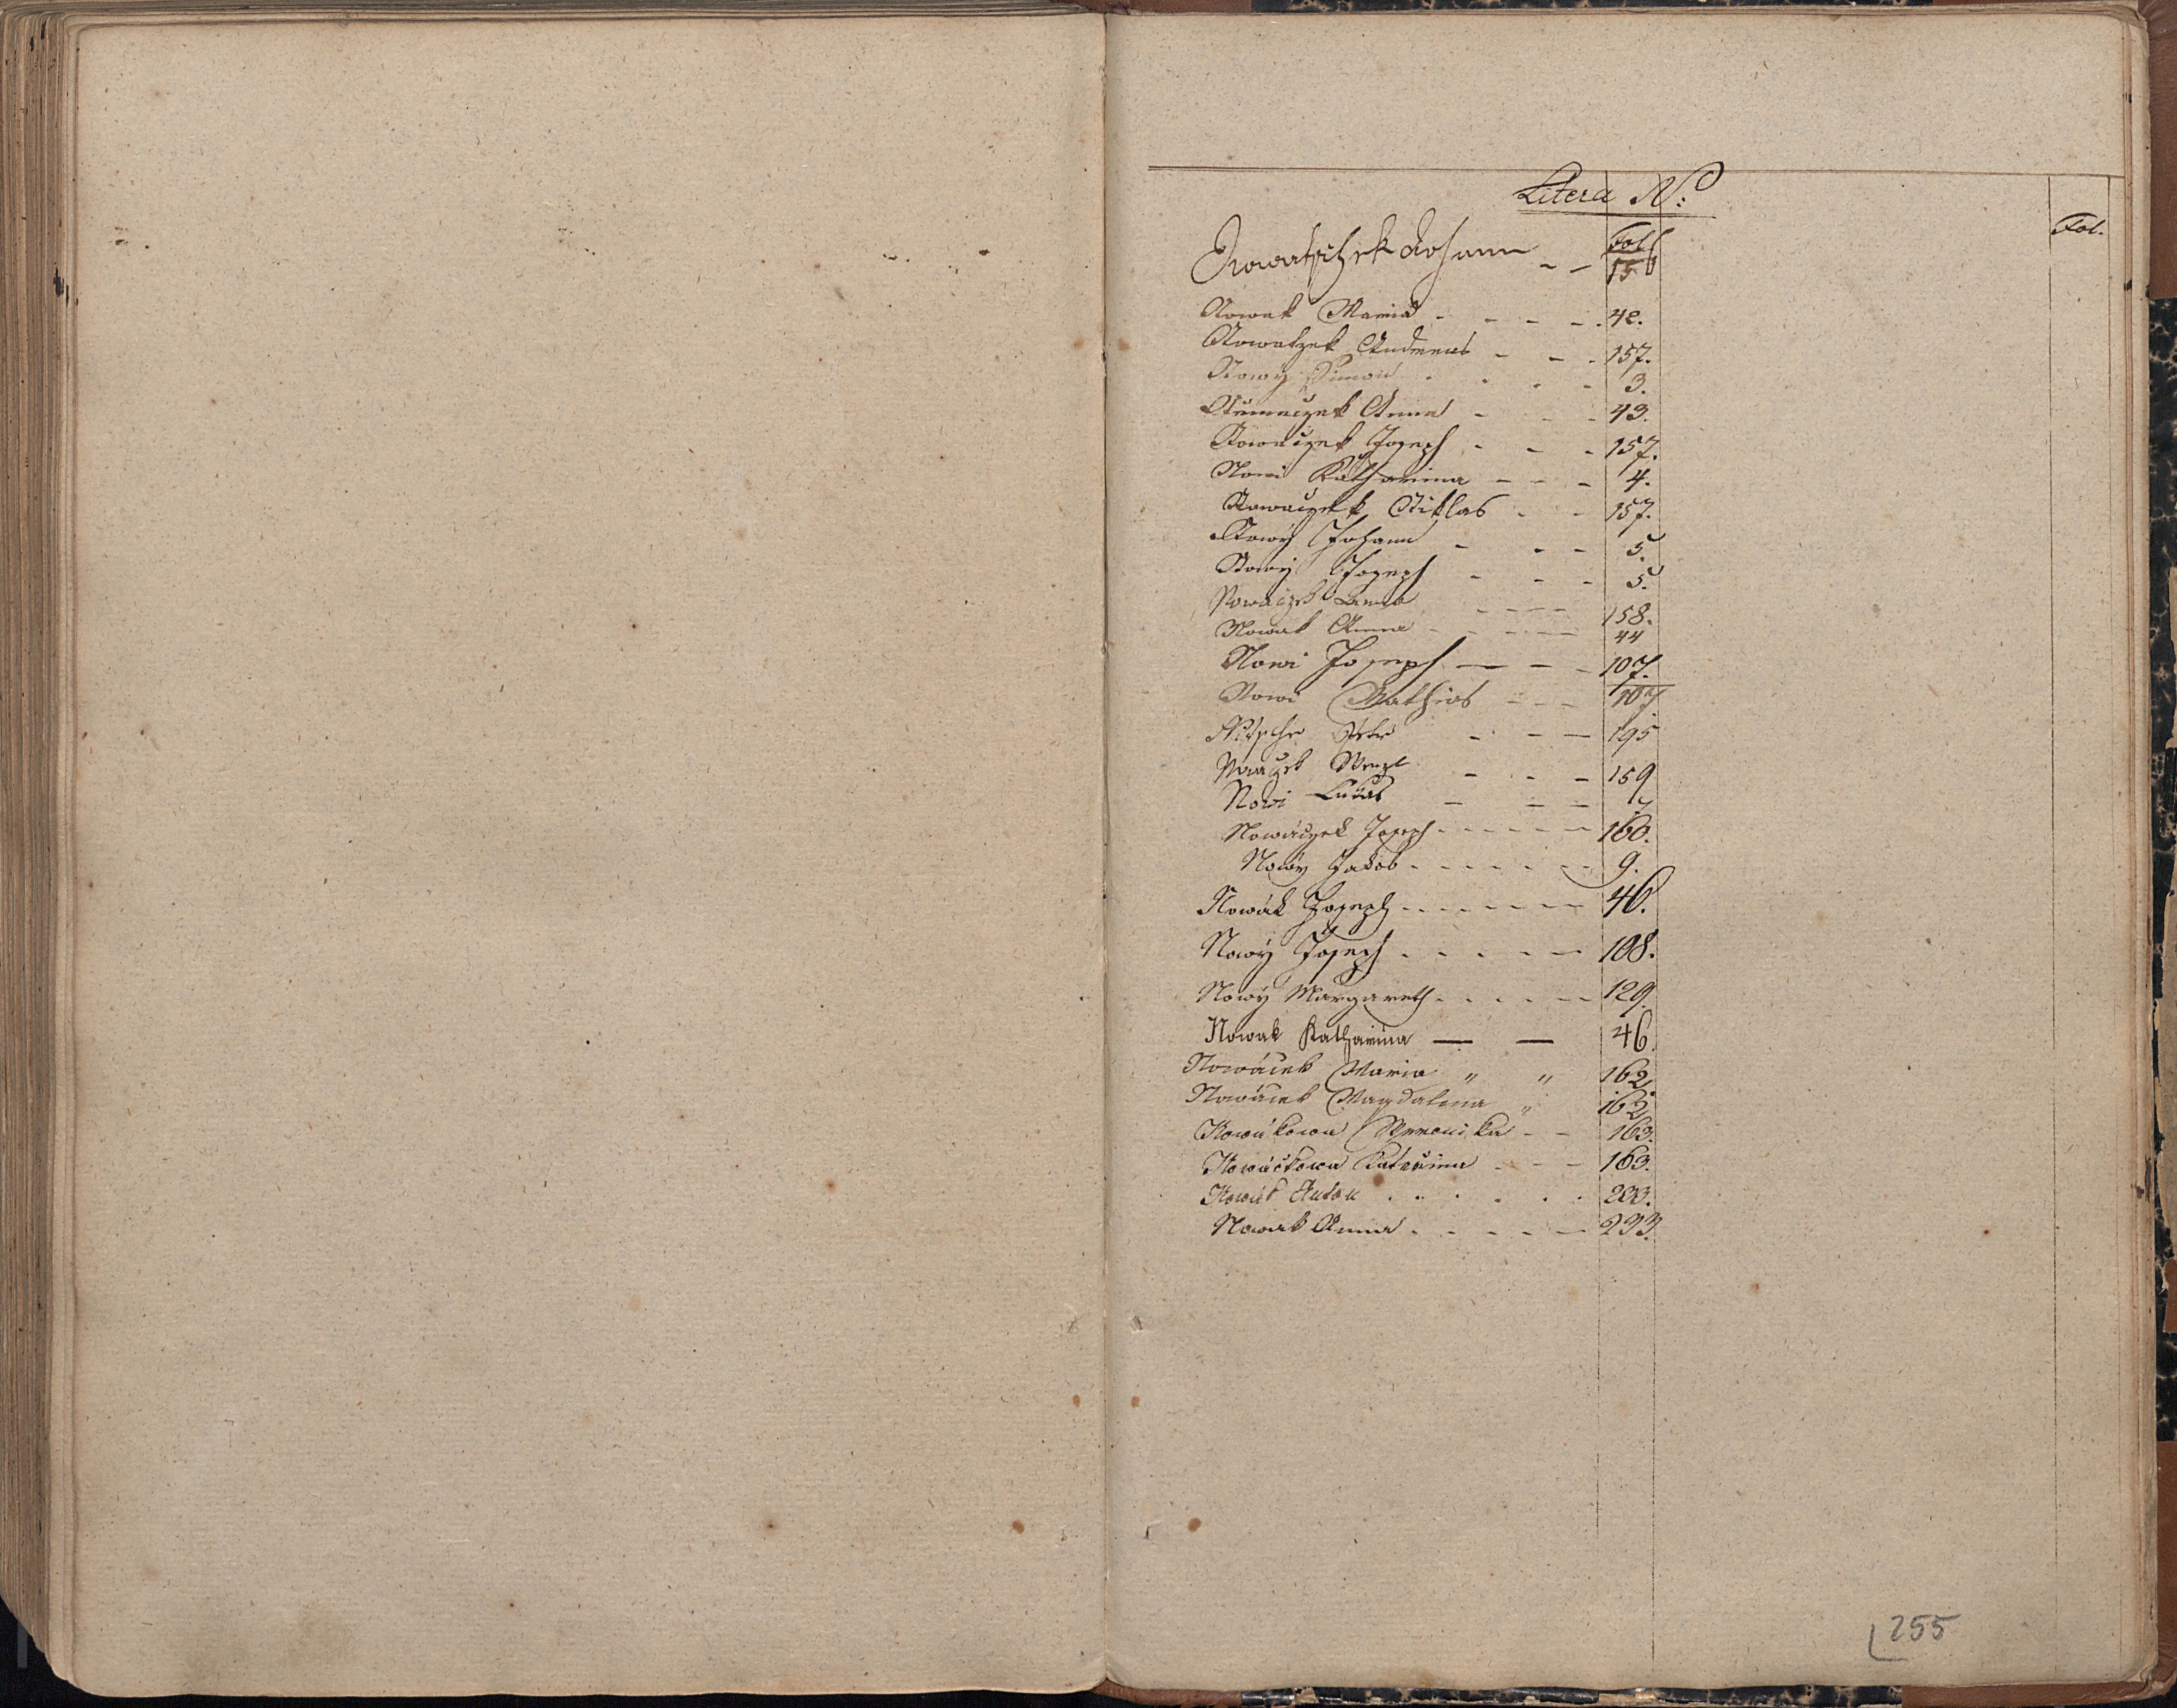 Litera N:
Fol.
Fol.
Nowatschek Johann - - 156
Nowak Maria - - - - 42.
Nowatzek Andreas - - - 157.
Nowy Simon - - - - 3.
Anna - - - 43.
Nowaczek Joseph - - - 157.
Nowi Katharina - - - 4.
Nowaczek Niklas - - 157.
Nowý Johann - - - 5.
Nowý Joseph - - - 5.
Nowaczek - - - - 158.
Nowak Anna - - - - 44
Nowi Joseph - - - 107.
Nowi Mathias - - - 107
Nitsche Peter - - - 195
Wenzl - - - 159
Nowi Lukas - - - 7
Nowáczek Joseph - - - - - 160.
Nowý Jakob - - - - - 9.
Nowák Joseph - - - - - - 46.
Nowý Joseph - - - - - 108.
Nowý Margareth - - - - - 129.
Nowak Katharina — — 46.
Nowáček Maria " " 162.
Nowáček Magdalena " 162.
Nowákowa Weronika - - 163.
Nowáčkowa Kateřina - - - 163.
Nowák Anton . . . . . .
Nowak Anna - - - - - 233.
255